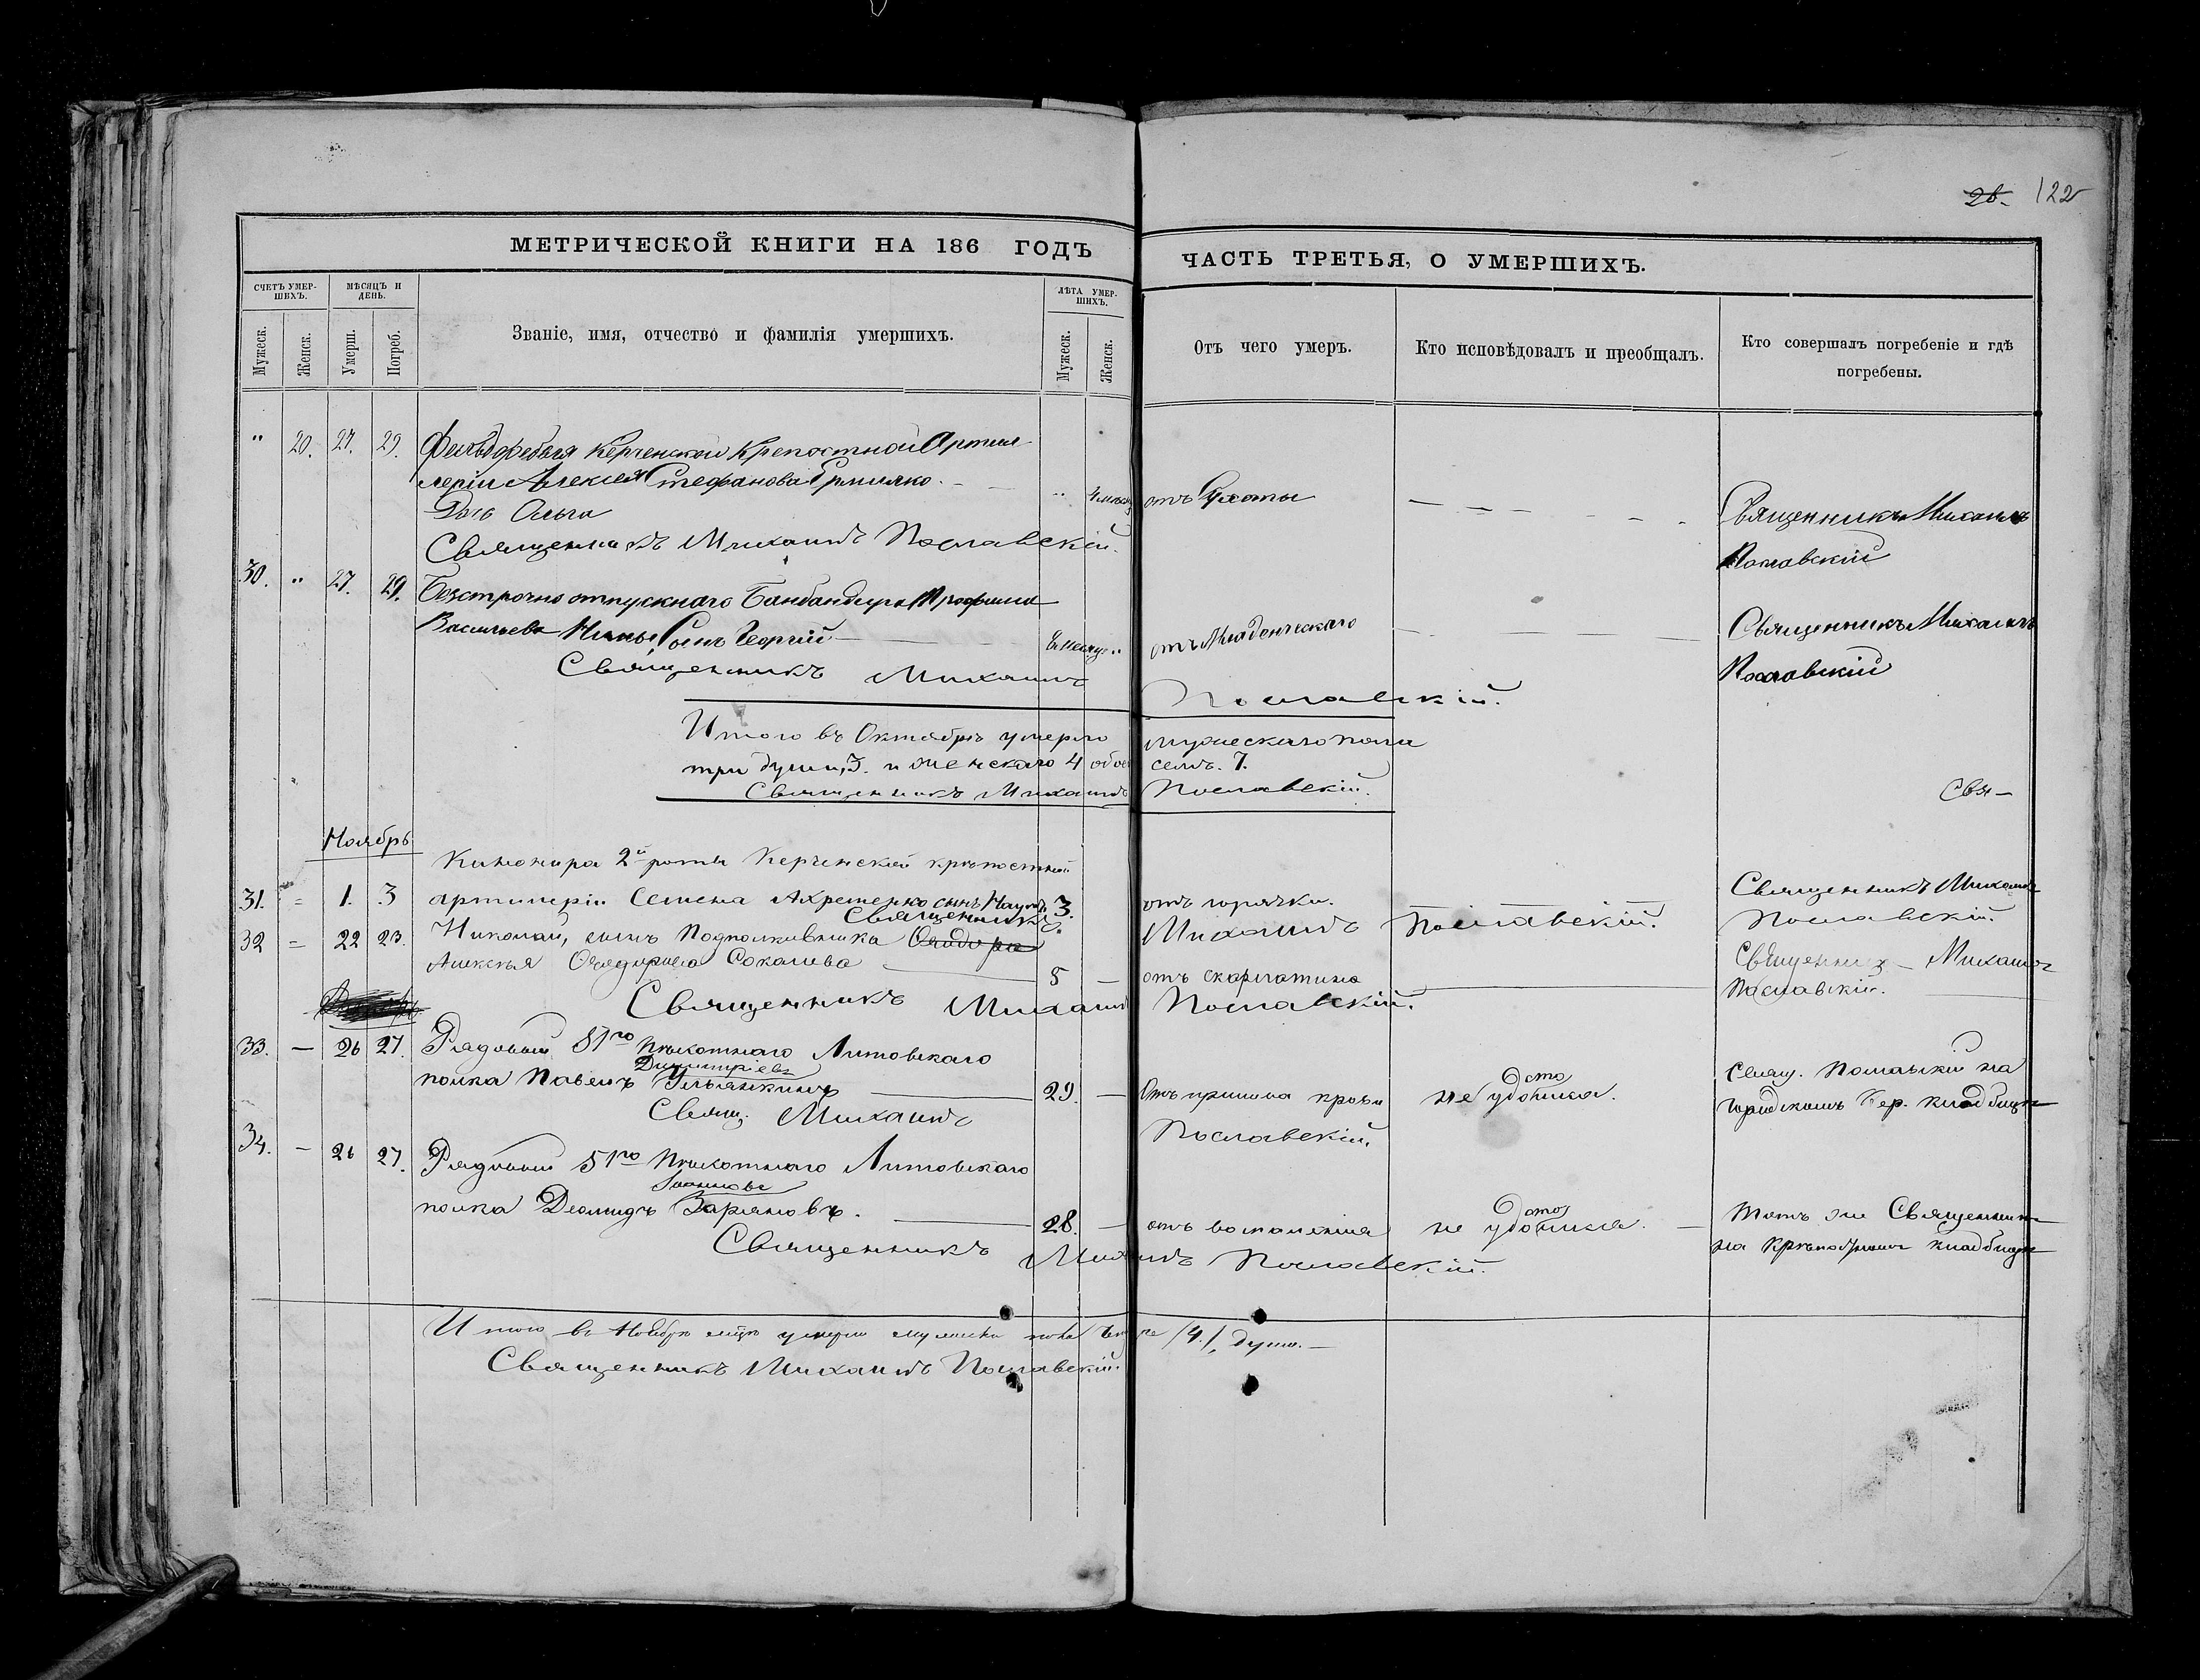 28. 122
МЕТРИЧЕСКОЙ КНИГИ НА 186 ГОДЪ
ЧАСТЬ ТРЕТЬЯ, О УМЕРШИХЪ.
СЧЕТЪ УМЕР-
ШИХЪ.
МѢСЯЦЪ И
ДЕНЬ.
Званіе, имя, отчество и фамилія умершихъ.
ЛѢТА УМЕР-
ШИХЪ.
Мужеск.
Женск.
Умерш.
Погреб.
Мужеск.
Женск.
Отъ чего умеръ.
Кто исповѣдовалъ и пріобщалъ.
Кто совершалъ погребеніе и гдѣ
погребены.
" 20. 27. 29. Фельдфебеля Керченской Крепостной Артил
леріи Алексея Стефанова Ермилко
Дочь Ольга
отъ
Священникъ Михаилъ
Пославскій
Священникъ Михаилъ Пославскій.
30. " 27. 29. Безсрочно отпускнаго Трофима
Васильева сынъ Георгій
отъ Младенческаго
Священникъ Михаилъ
Пославскій
Священникъ Михаилъ Пославскій.
Итого въ Октябрѣ умерло мужескаго пола
три души, 3. и женскаго 4 обоего семь. 7.
Священникъ Михаилъ Пославскій.
Свя—
Ноябрь
Канонира 2й роты Керченской крѣпостной
31. = 1. 3 артилеріи Семена Ахременко сынъ Наумъ 3. отъ горячки.
Священникъ Михаилъ
Пославскій.
Священникъ Михаилъ Пославскій.
32 = 22 23. Николай, сынъ Подполковника
Алексѣя Соколова 5 — отъ скарлатина
Священникъ Михаилъ
Пославскій.
Священникъ Михаилъ Пославскій.
33. — 26 27. Рядовый 51го Пѣхотнаго Литовскаго
Димитріевъ
полка Павелъ Ульянкинъ 29. — Отъ прилива крови не удостоился.
Свящ. Пославскій на
городскомъ Кер. кладбищѣ
Свящ. Михаилъ Пославскій.
34. — 26 27. Рядовый 51го Пѣхотнаго Литовскаго
Іоанновъ
полка Деомидъ Заряновъ. 28. — отъ воспаленія не удостоился.
Тотъ же Священникъ
на Крѣпостномъ кладбищѣ
Священникъ Михаилъ Пославскій.
Итого въ Ноябрѣ умерло пола /4./, душъ.—
Священникъ Михаилъ Пославскій.